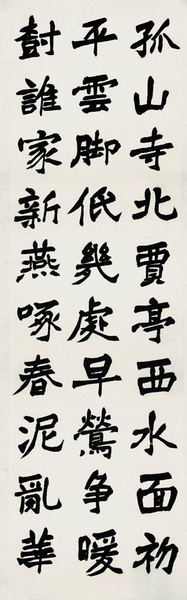 孤山寺北賈亭西水面初
平雲脚低幾處早鶯争暖
樹誰家新燕啄春泥亂華